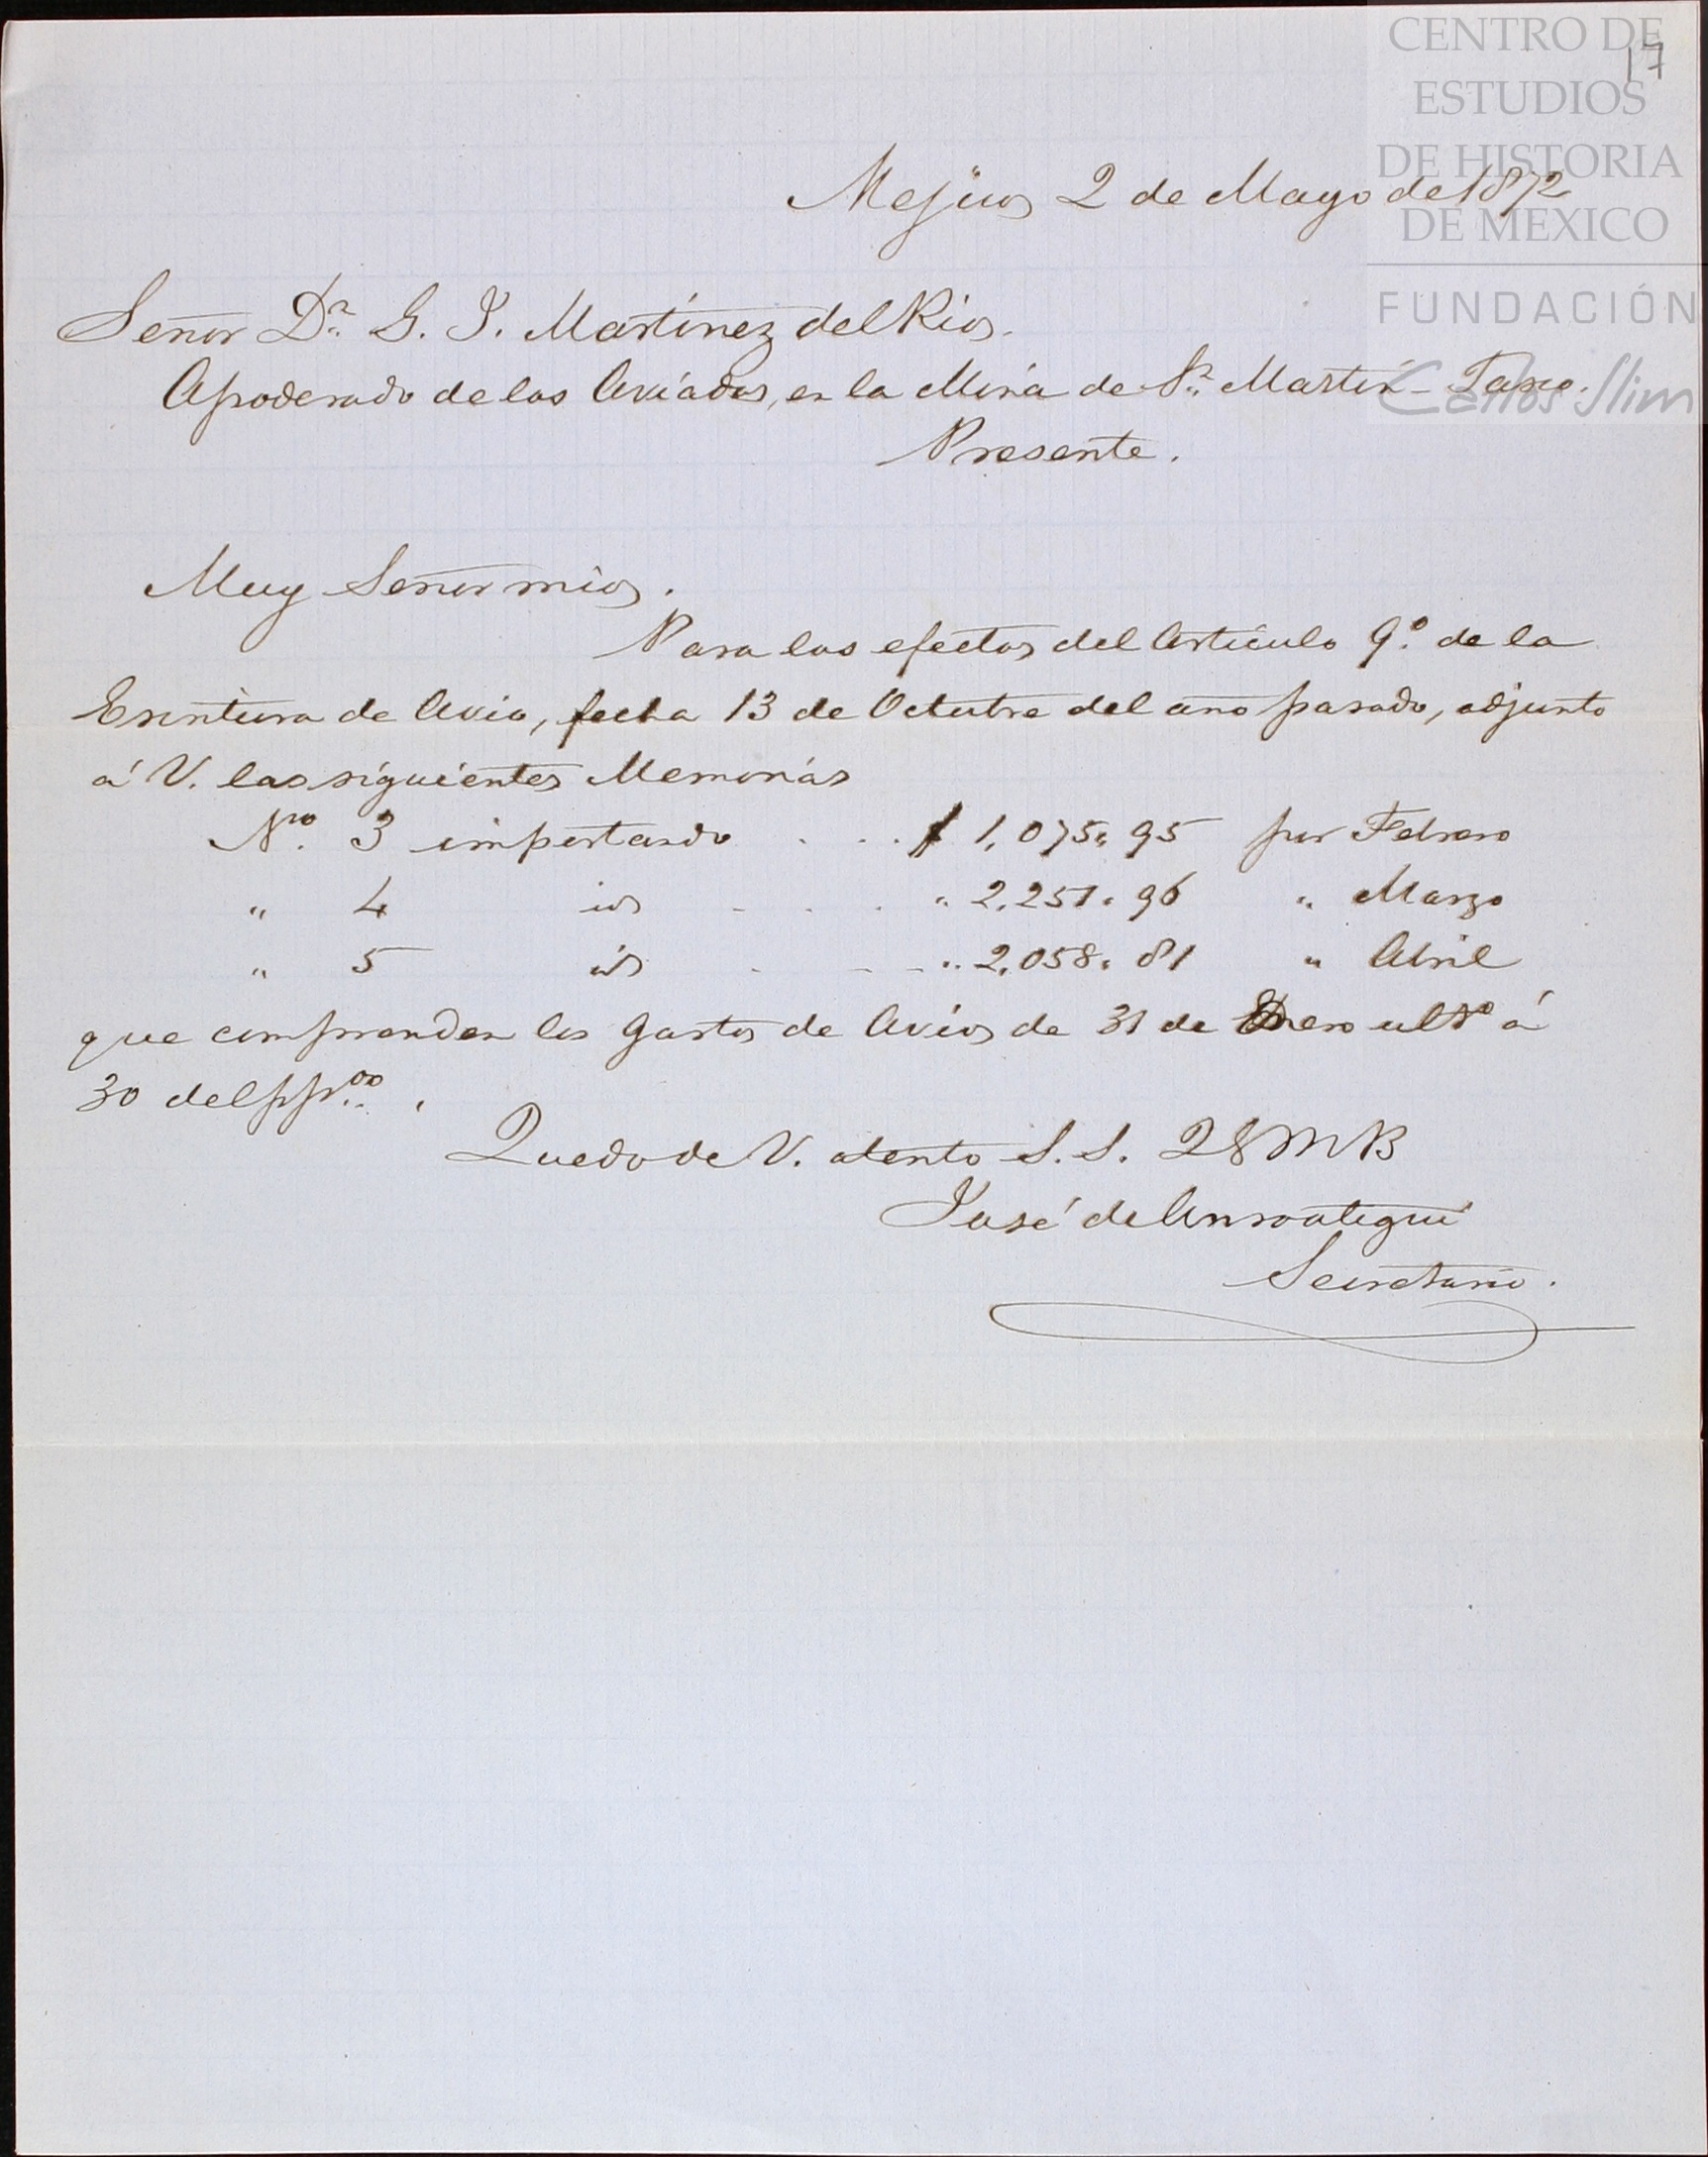 CENTRO DE
ESTUDIOS
DE HISTORIA
DE MEXICO
FUNDACIÓN
Carlos Slim
17
Mejico 2 de Mayo de 1872
Señor Dn. G. I. Martinez del Rio.
Apoderado de los Aviados, en la Mina de Sn. Martin - Taxco.
Presente.
Muy Señor mio.
Para los efectos del Articulo 9º. de la
Escritura de Avio, fecha 13 de Octubre del año pasado, adjunto
á V. las siguientes Memorias
Nro. 3 importando . . . $ 1,075. 95 por Febrero
" 4 id . . . " 2,251. 96 " Marzo
" 5 id . . . " 2,058. 81 " Abril
que comprenden los gastos de Avio, de 31 de Enero ulto á
30 del ppdo.
Quedo de V. atento S. S. Q B M B
José de Ansoategui
Secretario.